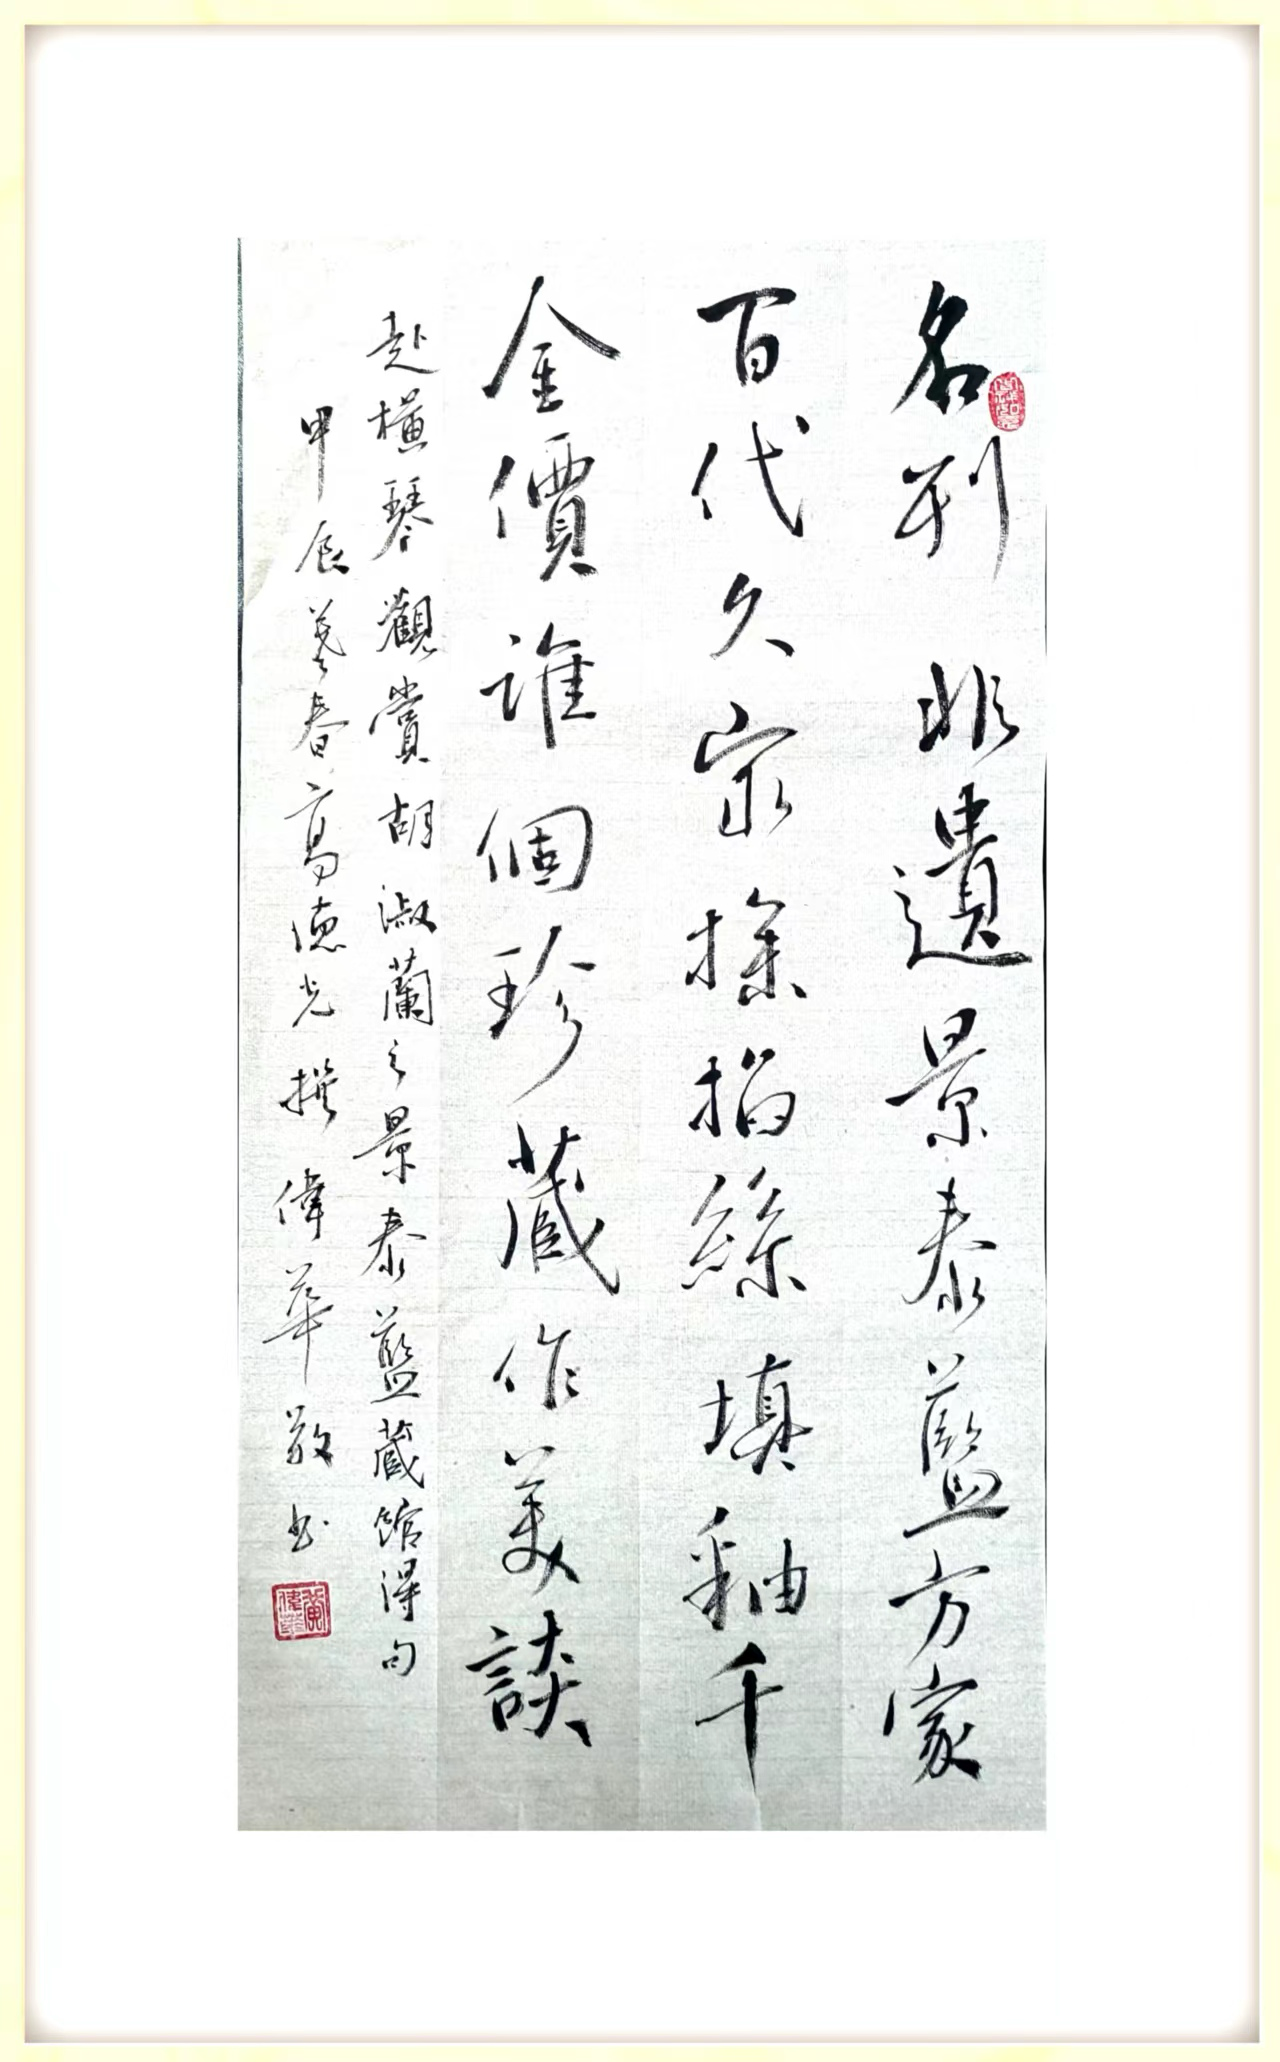 名列非遺景泰藍方家
百代久探掐絲填釉千
金價誰個珍藏作美談
赴橫琴觀賞胡淑蘭之景泰藍藏館得句
甲辰暮春高德光撰 偉華敬书
黃偉華